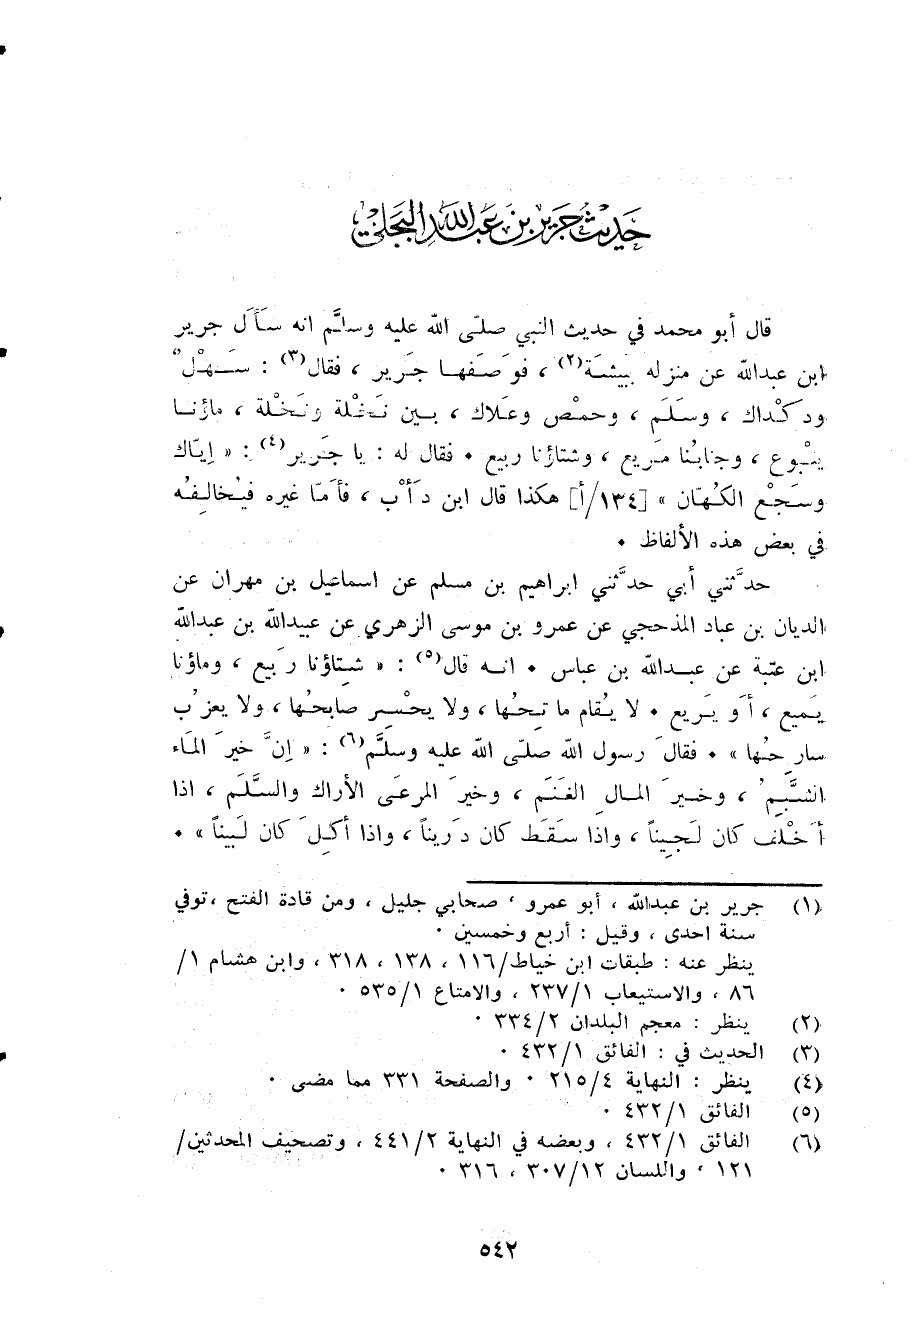 حديث جرير بن عبدالله البجلي
قال أبو محمد في حديث النبي صلّى الله عليه وسلّم انه سَأَلَ جرير
ابن عبدالله عن منزله بِبِيشَة(٢) ، فوَصَفَهـا جَرير ، فقال(٣) : سَـهْلٌ
ودَكْداك ، وسَلَم ، وحمْض وعَلاك ، بـين نَخْلة ونَخْلة ، ماؤنـا
يَنْبوع ، وجنابُنا مَريع ، وشتاؤنا ربيع ٠ فقال له : يا جَرير(٤) : « إيّاك
وسَجْع الكُهّان » [١٣٤/أ] هكذا قال ابن دَأْب ، فأمّا غيره فيُخالفُه
في بعض هذه الألفاظ ٠
حدَّثني أبي حدَّثني ابراهيم بن مسلم عن اسماعيل بن مهران عن
الديان بن عباد المذحجي عن عمرو بن موسى الزهري عن عبيدالله بن عبدالله
ابن عتبة عن عبـدالله بن عباس ٠ انـه قال(٥) : « شِتاؤنا رَبيع ، وماؤنا
يَميع ، أو يَريع ٠ لا يُقام ماتِحُها ، ولا يحْسِر صابحُها ، ولا يعزُب
سارِحُها » ٠ فقالَ رسول الله صلّى الله عليه وسلَّم(٦) : « إنَّ خيرَ المَاء
الشَّبِمُ ، وخـيرَ المـالِ الغَنَم ، وخيرَ المرعَى الأراك والسَّلَم ، اذا
أَخْلف كان لَجِيناً ، واذا سَقَط كان دَريناً ، واذا أكِلَ كان لَبيناً » ٠
(١) جرير بن عبدالله ، أبو عمرو ، صحابي جليل ، ومن قادة الفتح ،توفي
سنة احدى ، وقيل : أربع وخمسين ٠
ينظر عنه : طبقات ابن خياط/١١٦ ، ١٣٨ ، ٣١٨ ، وابن هشام ١/
٨٦ ، والاستيعاب ٢٣٧/١ ، والامتاع ٥٣٥/١ ٠
(٢) ينظر : معجم البلدان ٣٣٤/٢ ٠
(٣) الحديث في : الفائق ٤٣٢/١ ٠
(٤) ينظر : النهاية ٢١٥/٤ ٠ والصفحة ٣٣١ مما مضى ٠
(٥) الفائق ٤٣٢/١ ٠
(٦) الفائق ٤٣٢/١ ، وبعضه في النهاية ٤٤١/٢ ، وتصحيف المحدثين/
١٢١ ، واللسان ٣٠٧/١٢ ، ٣١٦ ٠
٥٤٢